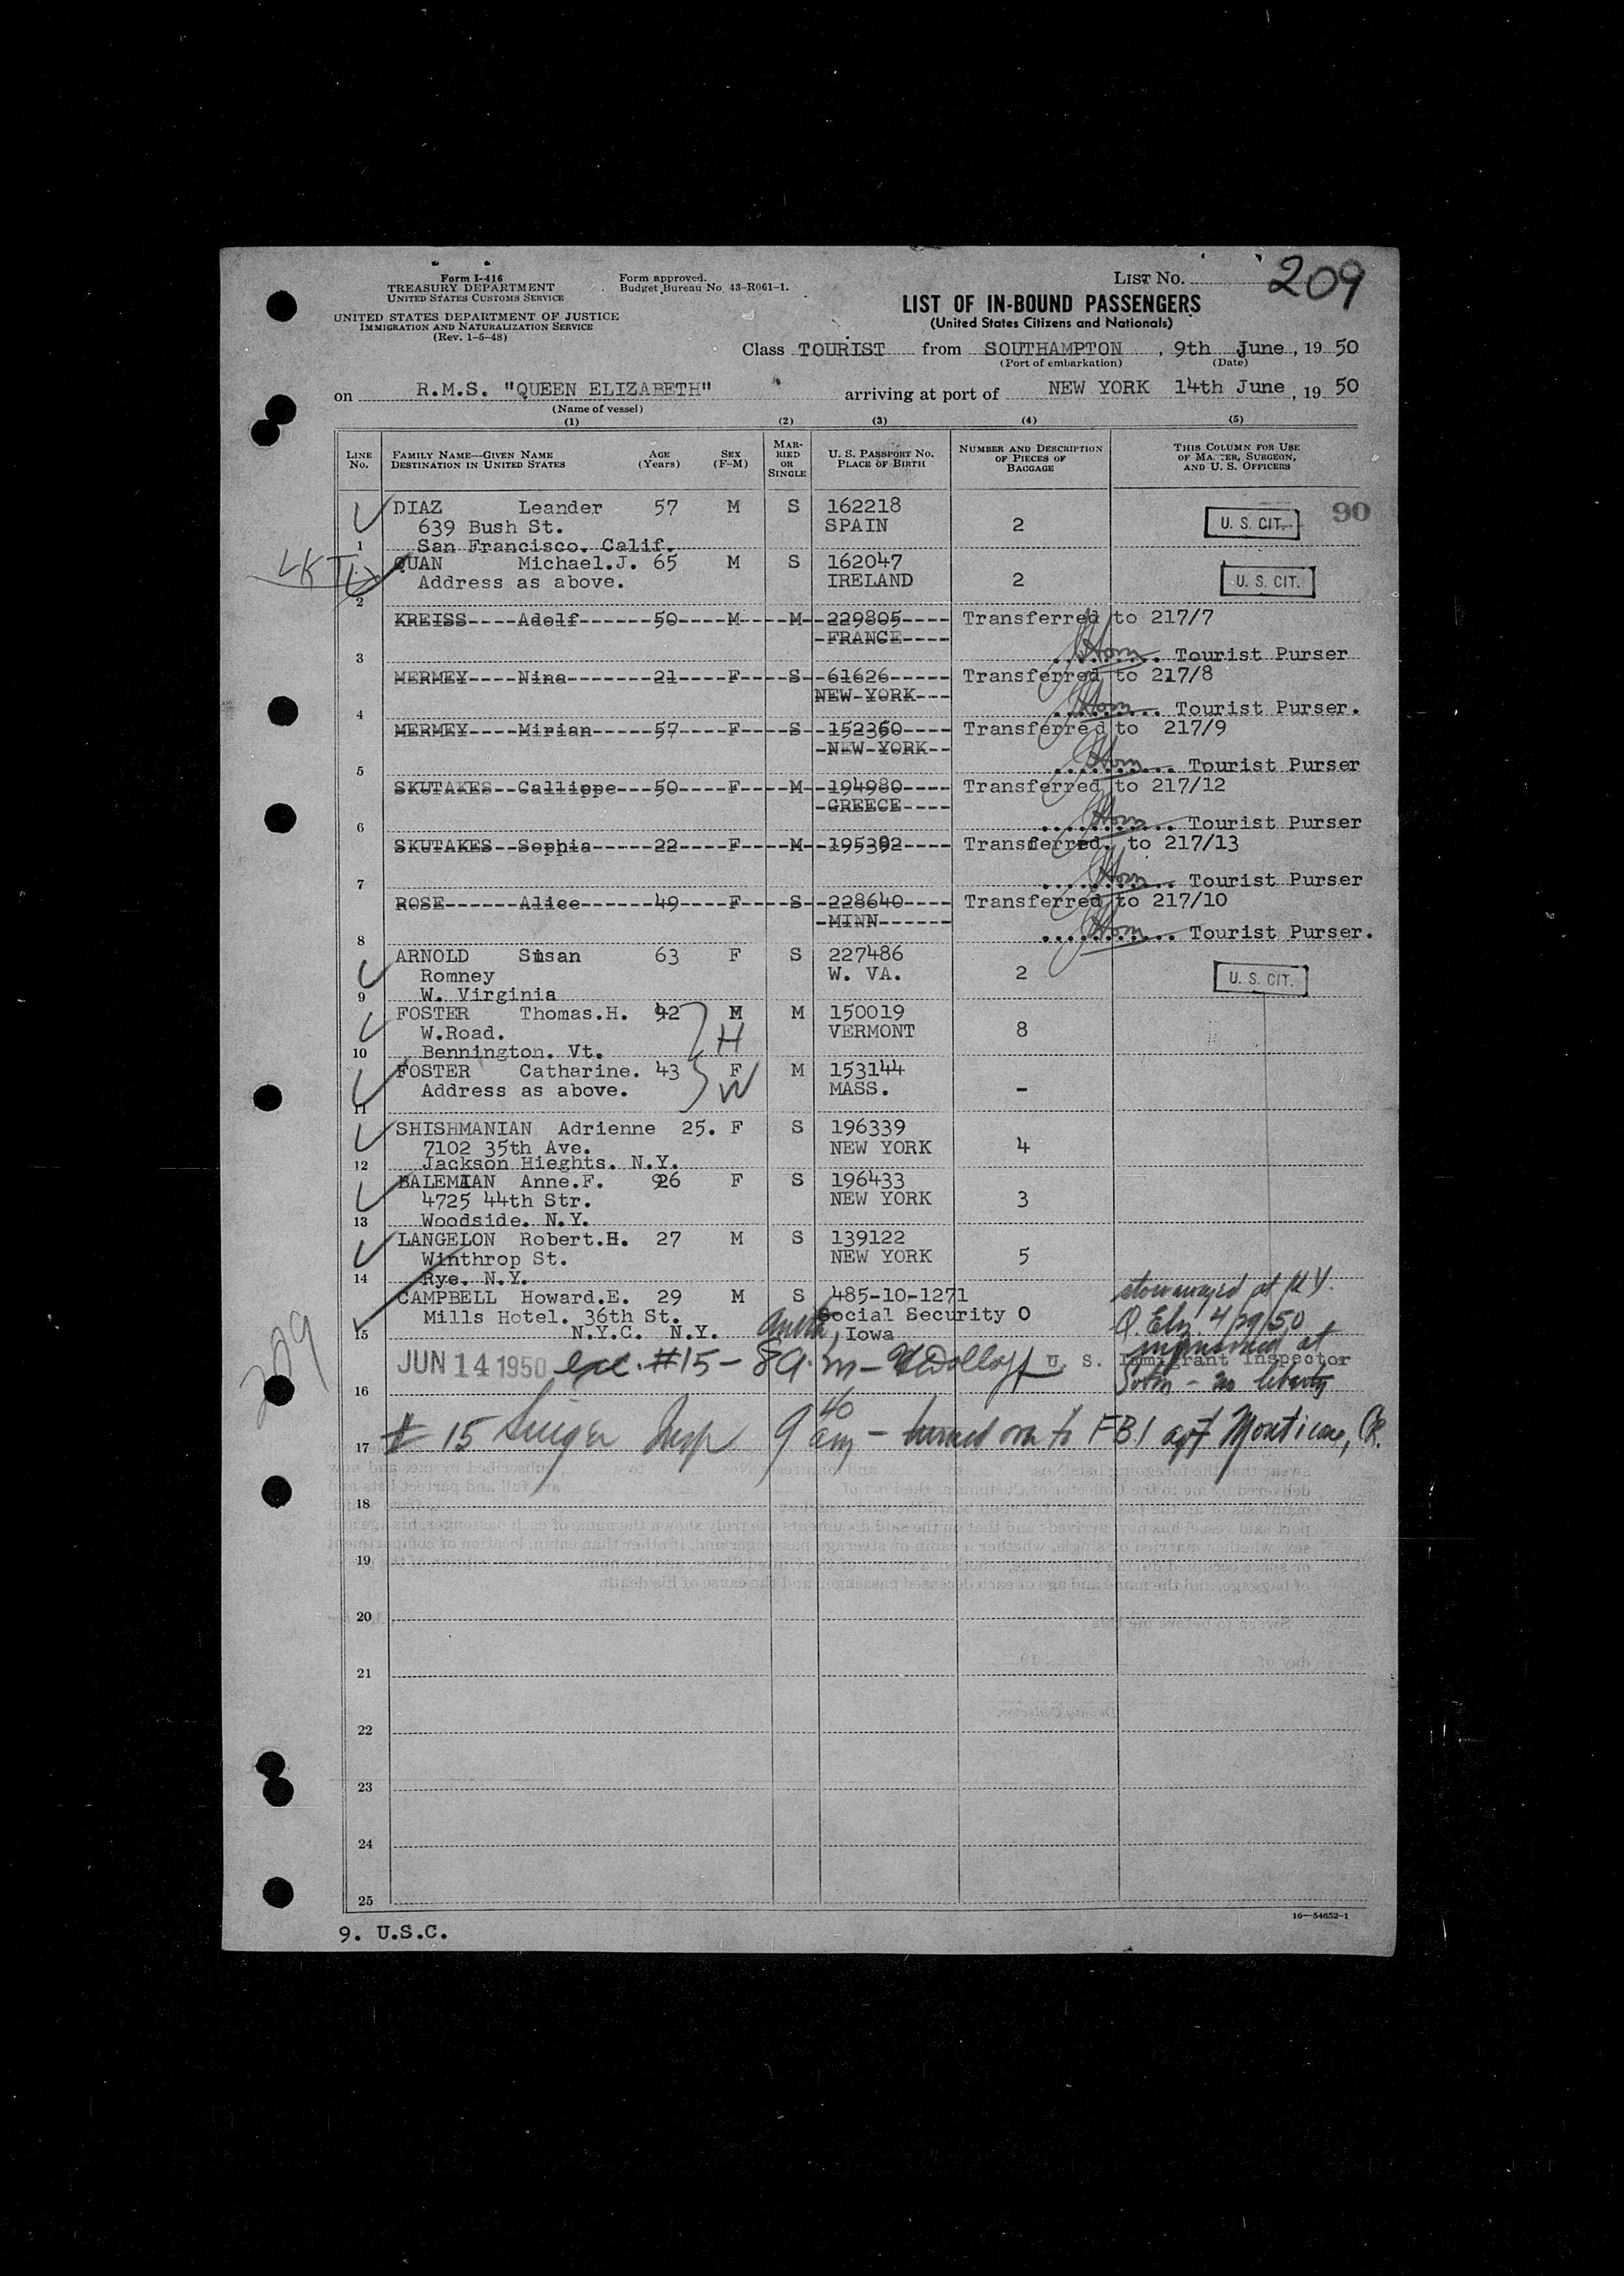 Form I-416
TREASURY DEPARTMENT
UNITED STATES CUSTOMS SERVICE
UNITED STATES DEPARTMENT OF JUSTICE
IMMIGRATION AND NATURALIZATION SERVICE
(Rev. 1-5-48)
Form approved.
Budget Bureau No. 43-R061-1.
LIST No. 209
LIST OF IN-BOUND PASSENGERS
(United States Citizens and Nationals)
Class TOURIST from SOUTHAMPTON, 9th June, 19 50
(Port of embarkation) (Date)
on R.M.S. "QUEEN ELIZABETH" arriving at port of NEW YORK 14th June, 19 50
(Name of vessel)
(1) (2) (3) (4) (5)
LINE No. FAMILY NAME—GIVEN NAME DESTINATION IN UNITED STATES AGE (Years) SEX (F-M) MARRIED OR SINGLE U. S. PASSPORT No. PLACE OF BIRTH NUMBER AND DESCRIPTION OF PIECES OF BAGGAGE THIS COLUMN FOR USE OF MASTER, SURGEON, AND U. S. OFFICERS
DIAZ Leander 57 M S 162218 90
639 Bush St. SPAIN 2 U. S. CIT.
1 San Francisco. Calif.
QUAN Michael.J. 65 M S 162047
Address as above. IRELAND 2 U. S. CIT.
2
KREISS Adolf 50 M M 229805 Transferred to 217/7
FRANCE
3 Tourist Purser
MERMEY Nina 21 F S 61626 Transferred to 217/8
NEW YORK
4 Tourist Purser.
MERMEY Mirian 57 F S 152360 Transferred to 217/9
NEW YORK
5 Tourist Purser
SKUTAKES Calliope 50 F M 194980 Transferred to 217/12
GREECE
6 Tourist Purser
SKUTAKES Sophia 22 F M 195392 Transferred. to 217/13
7 Tourist Purser
ROSE Alice 49 F S 228640 Transferred to 217/10
MINN
8 Tourist Purser.
ARNOLD Susan 63 F S 227486
Romney W. VA. 2 U. S. CIT.
9 W. Virginia
FOSTER Thomas.H. 42 M M 150019
W.Road. H VERMONT 8
10 Bennington. Vt.
FOSTER Catharine. 43 F M 153144
Address as above. W MASS. -
11
SHISHMANIAN Adrienne 25. F S 196339
7102 35th Ave. NEW YORK 4
12 Jackson Hieghts. N.Y.
BALEMIAN Anne.F. 26 F S 196433
4725 44th Str. NEW YORK 3
13 Woodside. N.Y.
LANGELON Robert.H. 27 M S 139122
Winthrop St. NEW YORK 5
14 Rye. N.Y.
CAMPBELL Howard.E. 29 M S 485-10-1271 stowawayed at N Y.
Mills Hotel. 36th St. Social Security 0 Q. Eliz. 4/29/50
15 N.Y.C. N.Y. Iowa imprisoned at
JUN 14 1950 exc. #15 - 8 a.m - U. S. Immigrant Inspector
16 Soton - no liberty
17 # 15 Singer Insp 9 40 am - turned over to FBI agt
18
19
20
21
22
23
24
25
16—54652-1
9. U.S.C.
209